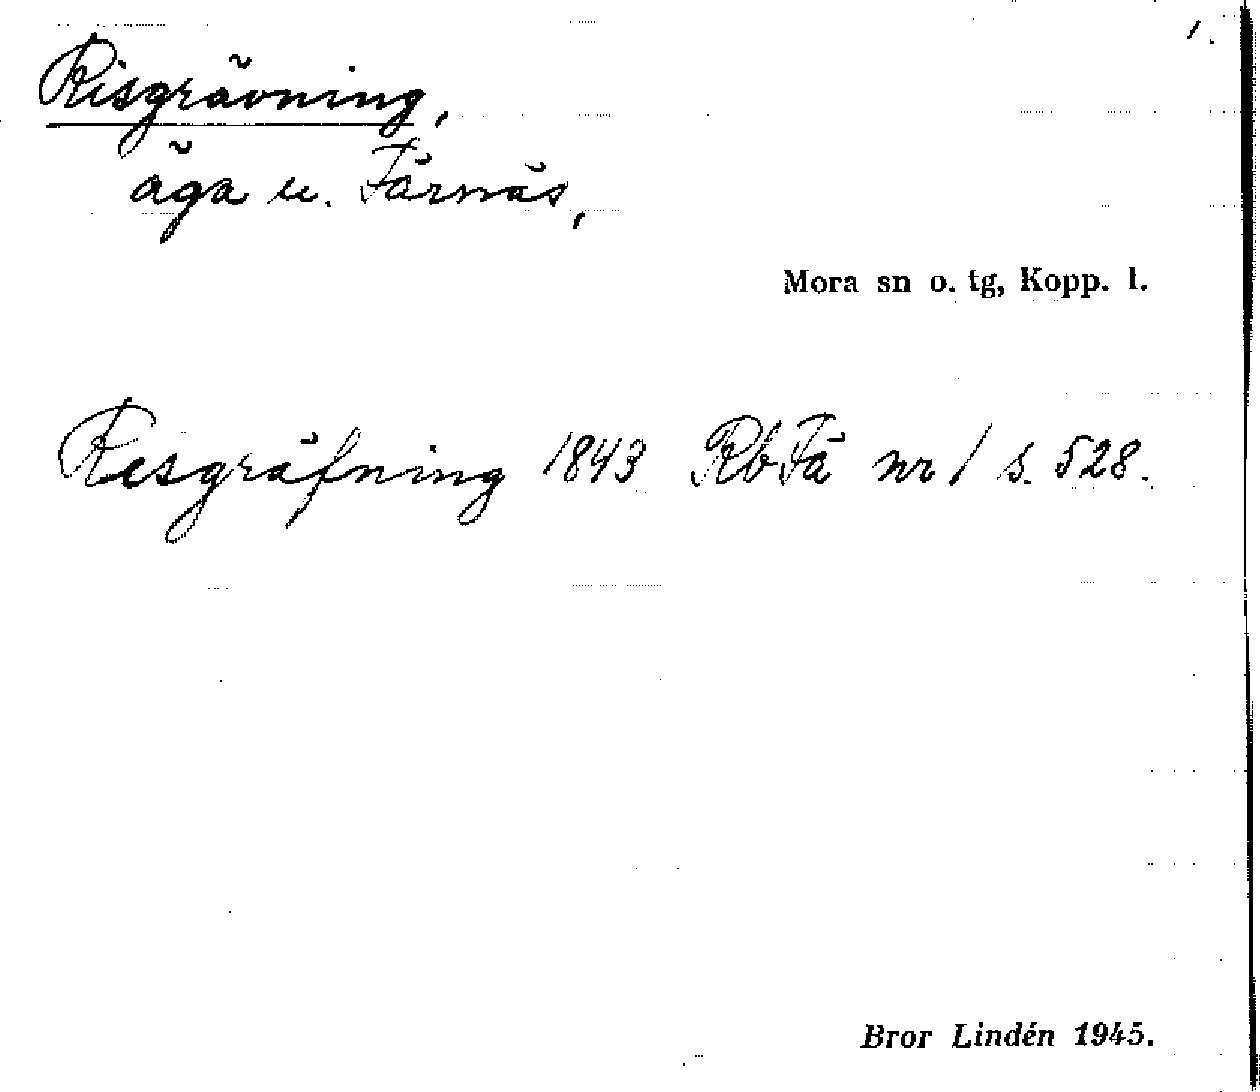 1.
Risgrävning,
äga u. Färnäs,
Mora sn o. tg, Kopp. l.
Resgräfning 1843 Rb Fä nr 1 s. 528.
Bror Lindén 1945.